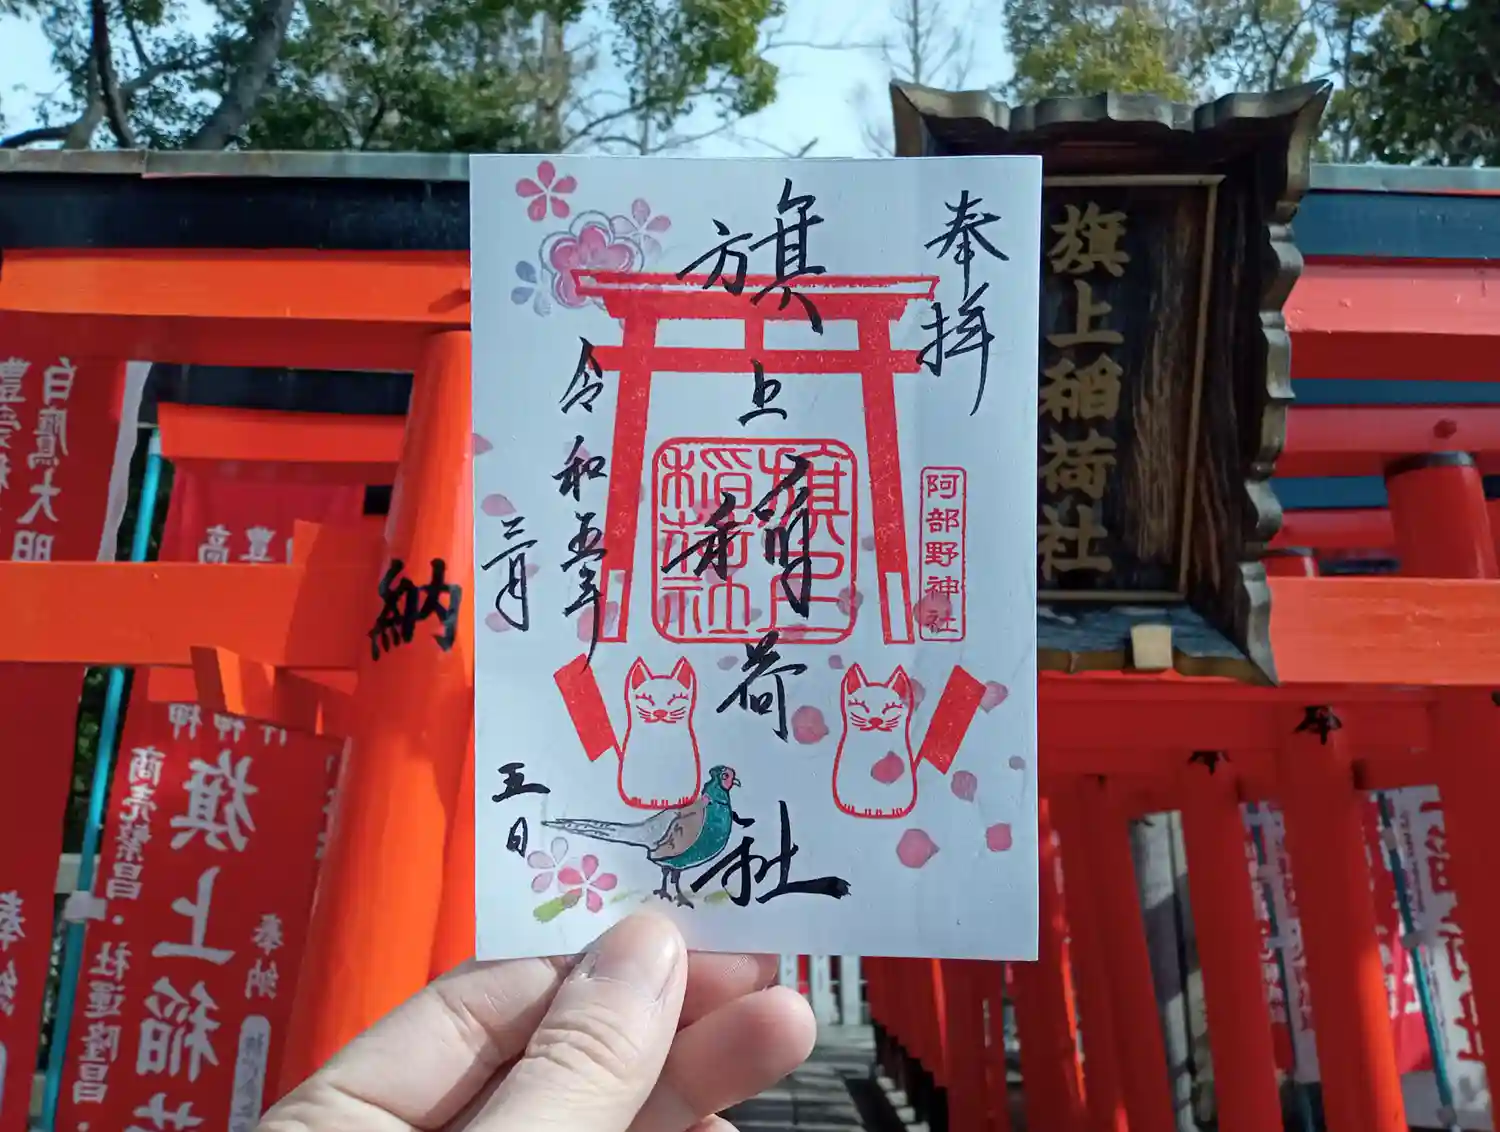 奉拝
旗上稲荷社
令和五年
三月
五日
旗上
稲荷社
阿部野神社
旗上稲荷社
納
白鷹大明
豊
高
豊
神
神
旗上稲荷
商売繁昌・社運隆昌・
奉納
奉納